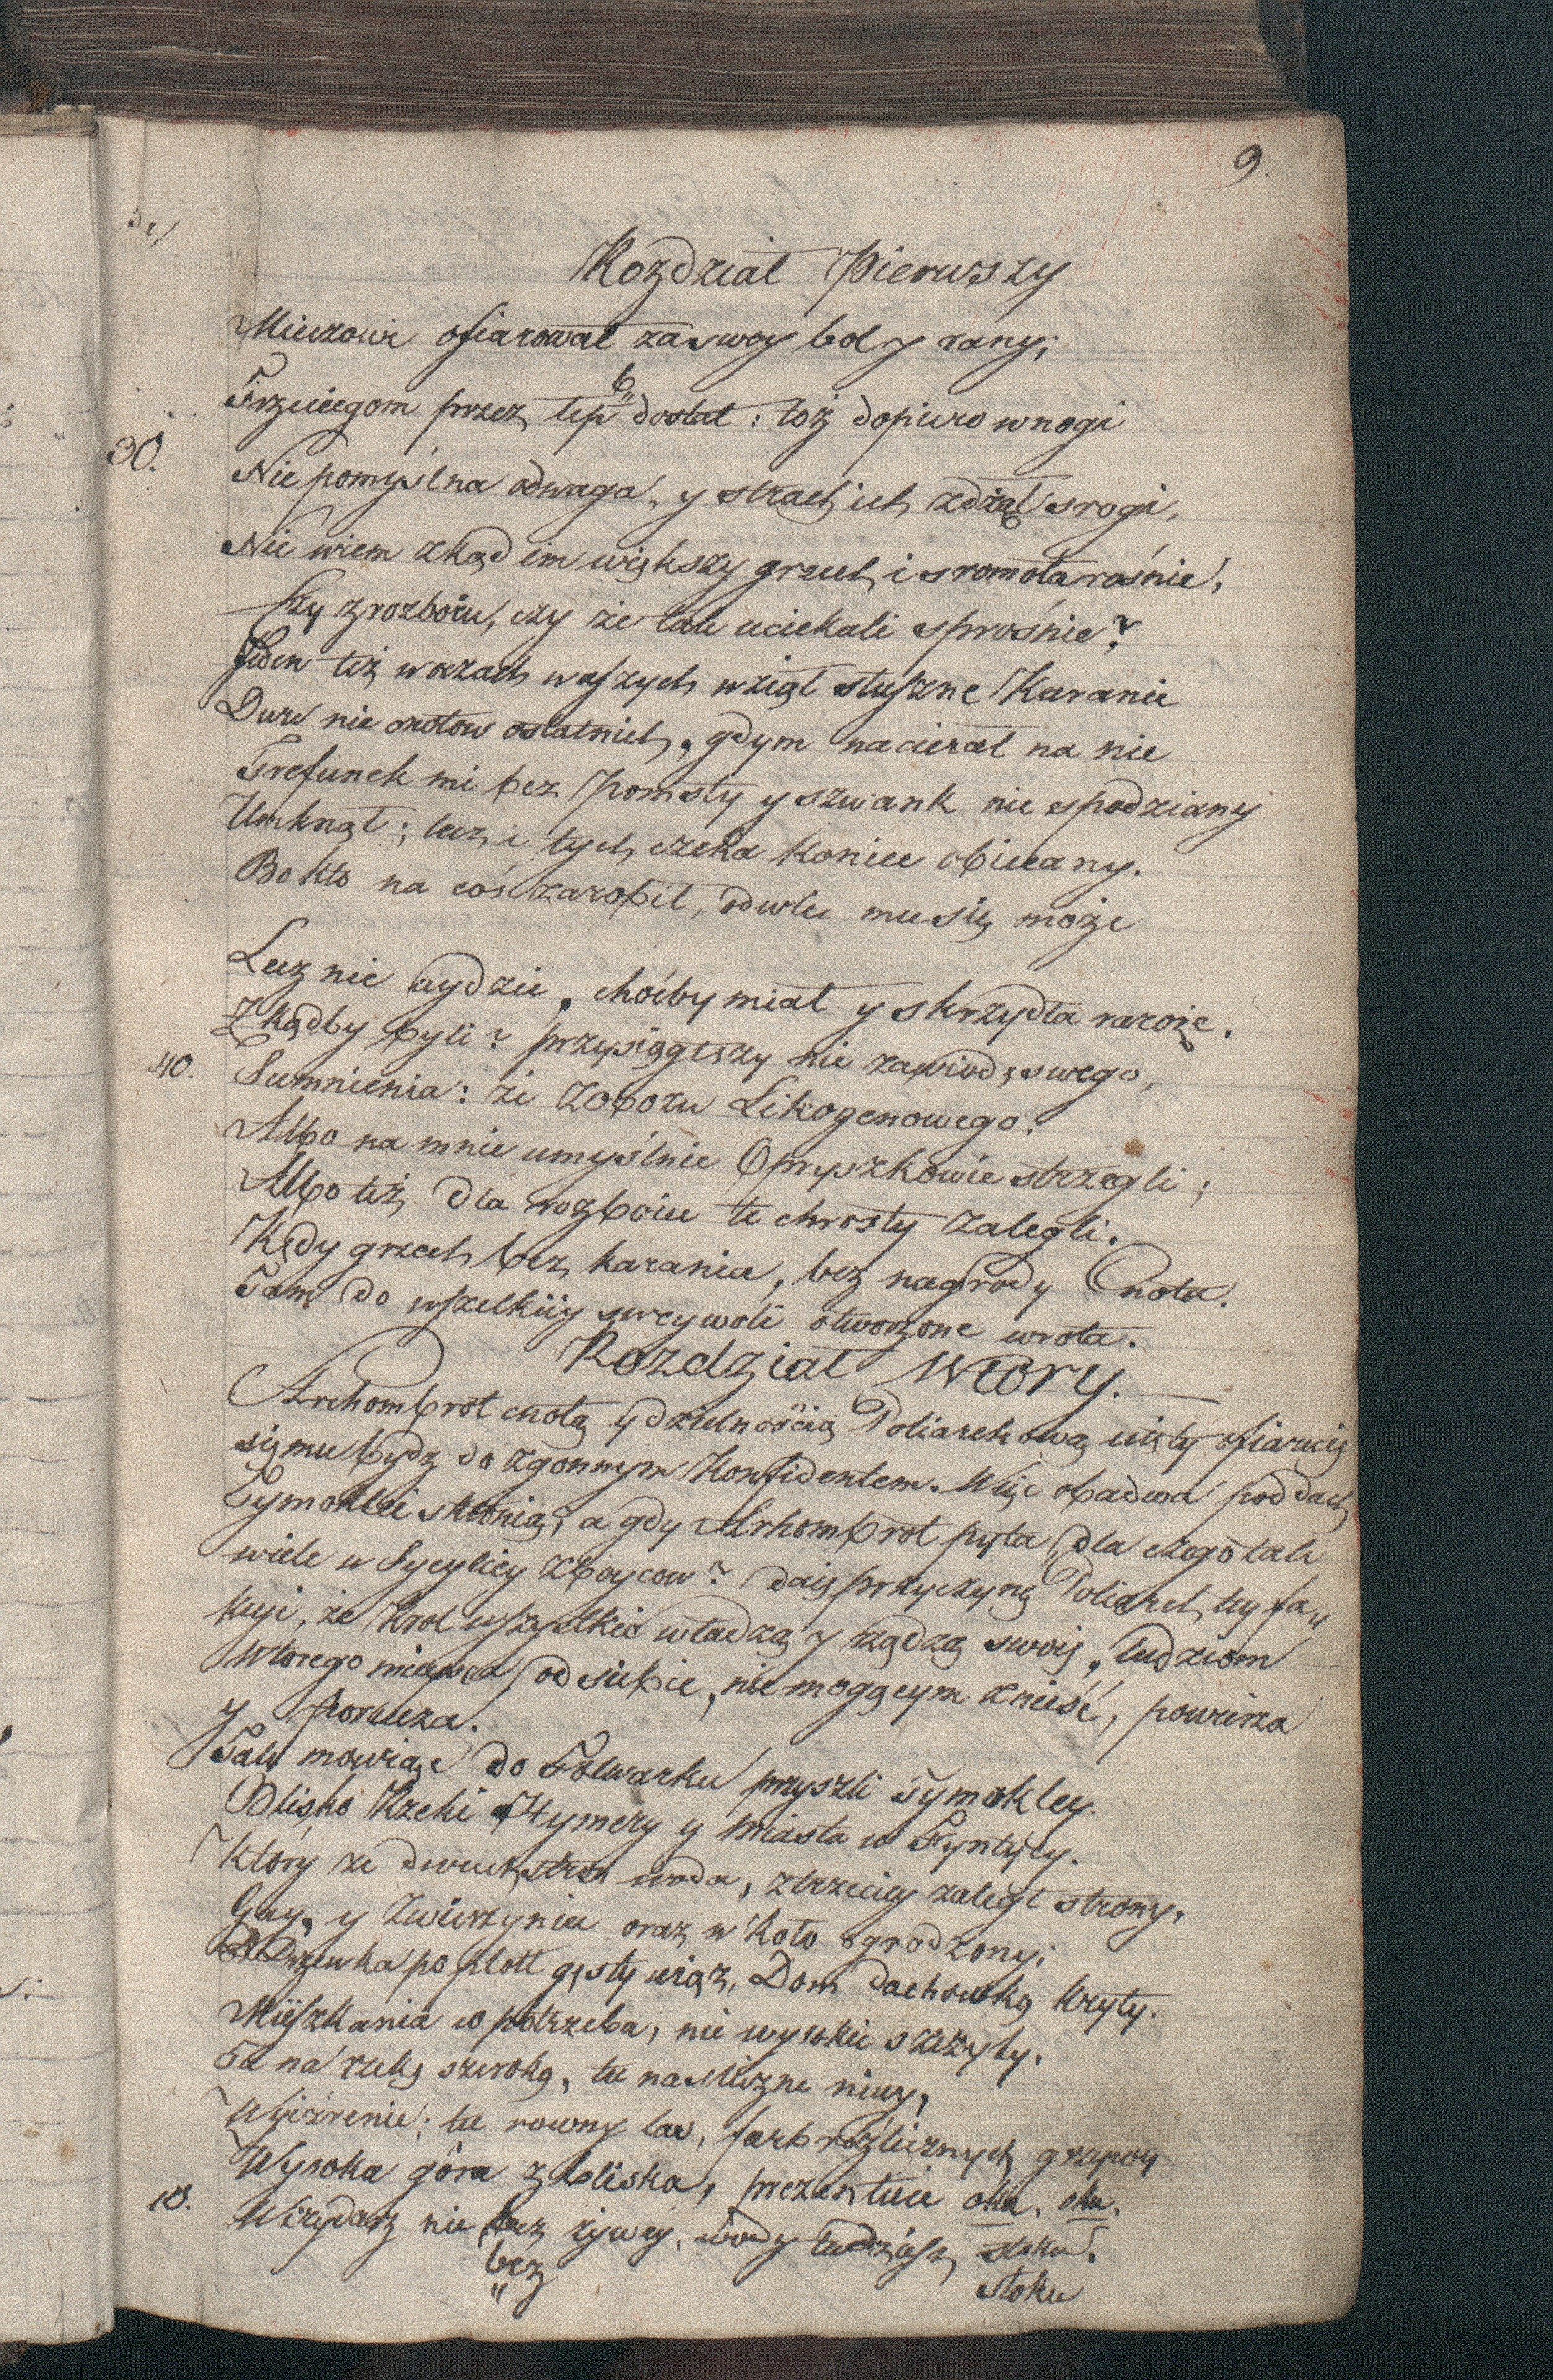 9.
Rozdział Pierwszy
Mieczowi ofiarował za swoy bol y rany;
Trzeciegom przez łep dostał: toż dopiero w nogi
b
30.
Nie pomyślna odwaga, y strach ich zdżął srogi,
Nie wiem zkąd im większy grzech i sromota rośnie,
Czy z rozboiu, czy że tak uciekali sprośnie?
Jeden też w oczach waszych wziął słuszne Karanie
Dwu nie cnotow ostatnich, gdym nacierał na nie
Trefunek mi bez pomsty y szwank nie spodziany
Umknął; lecz i tych czeka koniec obiecany.
Bo kto na coś zarobił, odwlec mu się może
Lecz nie uydzie, choćby miał y skrzydła raroże.
Zkądby byli? przysiągłszy nie zawiodę swego,
40.
Sumnienia: że z Obozu Likogenowego.
Albo na mnie umyślnie Opryszkowie strzegli;
Albo też dla rozboiu te chrosty zalegli.
Kędy grzech bez karania, bez nagrody Cnota.
Tam do wszelkiiy sweywoli otworzone wrota.
Rozdział Wtory.
Archombrot cnotą y dzielnością Poliarchową uięty ofiaruię
się mu bydz do zgonnym Konfidentem. Więc obadwa pod dach
Tymoklei skłonią, a gdy Arhombrot pyta, dla czego tak
wiele w Sycyliey zboycow? daię przyczynę Poliarch, tey
kuje, że Krol wszystkie władzą y rządzą swoię, ludziom
Wtorego mieysca od siebie, nie mogącym znieść, powierza
y porucza.
Tak mowiąc do Folwarku przyszli Tymokley.
Blisko Rzeki Hymery y Miasta w Fyntyly.
Który ze dwuch stron woda, z trzeciey zaległ strony,
Gay, y Zwierzyniec oraz w koło ogrodzony;
Drzewka po płott gęsty wiąz, Dom dachowką kryty.
Mieszkania co potrzeba, nie wysokie szczyty.
Tu na rzekę szeroką, tu na śliczne niwy,
Wyiźrenie; tu rowny las, farb rozlicznych grzywy
Wysoka góra z bliska, prezentuie oku. oku.
10.
Wirydarz nie bez żywey, wody tudzieśz stoku.
bez
stoku